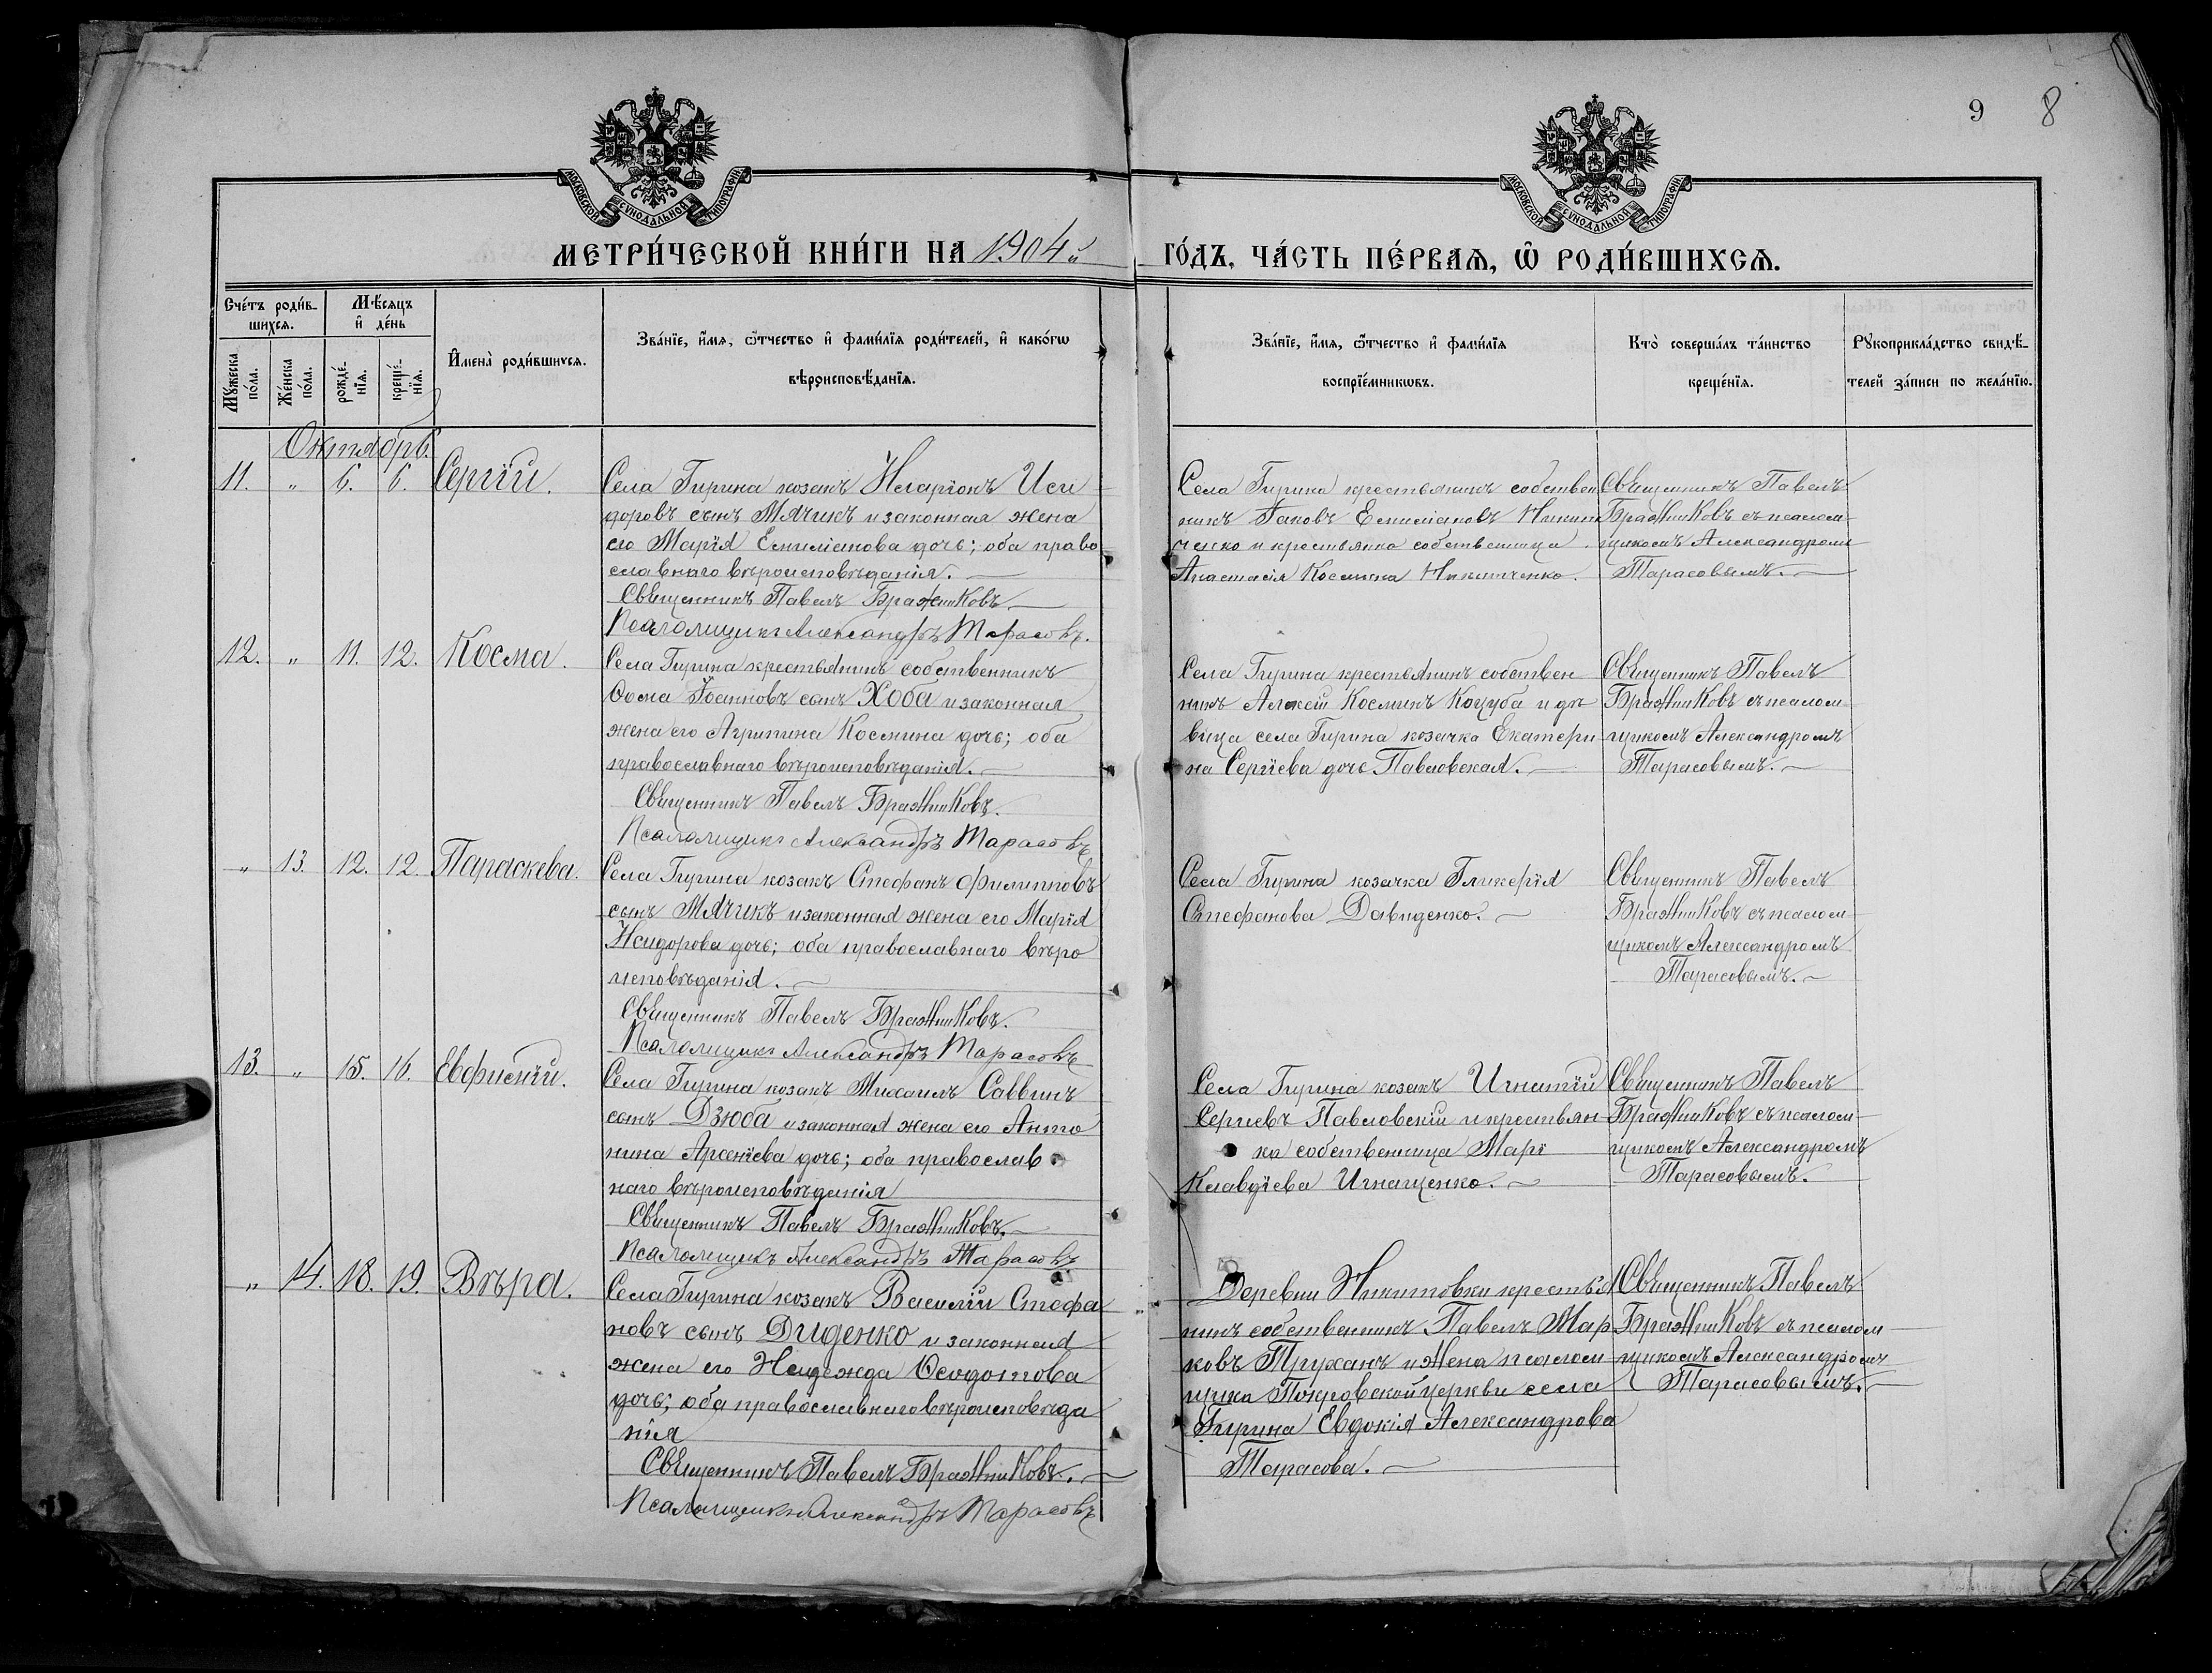 9 8
МОСКОВСКОЙ СУНОДАЛЬНОЙ ТИПОГРАФІИ
МОСКОВСКОЙ СУНОДАЛЬНОЙ ТИПОГРАФІИ
МЕТРИ́ЧЕСКОЙ КНИ́ГИ НА 1904й ГО́ДЪ, ЧА́СТЬ ПЕ́РВАѦ, Ѡ҆ РОДИ́ВШИХСѦ.
Сче́тъ роди́в-
шихсѧ.
Мꙋ́жеска по́ла.
Же́нска по́ла.
Мѣ́сѧцъ
и҆ де́нь
рожде́-
нїѧ.
креще́-
нїѧ.
И҆мена̀ роди́вшихсѧ.
Зва́нїе, и҆́мѧ, ѻ҆́тчество и҆ фами́лїѧ роди́телей, и҆ како́гѡ
вѣроисповѣ́данїѧ.
Зва́нїе, и҆́мѧ, ѻ҆́тчество и҆ фами́лїѧ
воспрїе́мникѡвъ.
Кто̀ соверша́лъ та́инство
креще́нїѧ.
Рꙋкоприкла́дство свидѣ́-
телей за́писи по жела́нїю.
Октябрь.
11. „ 6. 6. Сергій.
Села Гирина козакъ Иларіонъ Иси
доровъ сынъ Мячикъ и законная жена
его Марія Емиліанова дочь; оба право
славнаго вѣроисповѣданія.
Священникъ Павелъ Бражниковъ.
Псаломщикъ Александръ Тарасовъ.
Села Гирина крестьянинъ собствен
никъ Іаковъ Емиліановъ Никит
ченко и крестьянка собственница
Анастасія Космина Никитченко.
Священникъ Павелъ
Бражниковъ съ псалом-
щикомъ Александромъ
Тарасовымъ.
12. „ 11. 12. Косма.
Села Гирина крестьянинъ собственникъ
Ѳома Іоанновъ сынъ Хоба и законная
жена его Агрипина Космина дочь; оба
православнаго вѣроисповѣданія.
Священникъ Павелъ Бражниковъ.
Псаломщикъ Александръ Тарасовъ
Села Гирина крестьянинъ собствен
никъ Алексій Косминъ Коцуба и дѣ
вица села Гирина козачка Екатери
на Сергіева дочь Павловская.
Священникъ Павелъ
Бражниковъ съ псалом
щикомъ Александромъ
Тарасовымъ.
„ 13. 12. 12. Параскева.
Села Гирина козакъ Стефанъ Филипповъ
сынъ Мячикъ и законная жена его Марія
Исидорова дочь; оба православнаго вѣро
исповѣданія.
Священникъ Павелъ Бражниковъ.
Псаломщикъ Александръ Тарасовъ
Села Гирина козачка Гликерія
Стефанова Давиденко.
Священникъ Павелъ
Бражниковъ съ псалом-
щикомъ Александромъ
Тарасовымъ.
13. „ 15. 16. Евфимій.
Села Гирина козакъ Михаилъ Саввинъ
сынъ Дзюба и законная жена его Анто
нина Арсеніева дочь; оба православ
наго вѣроисповѣданія
Священникъ Павелъ Бражниковъ.
Псаломщикъ Александръ Тарасовъ
Села Гирина козакъ Игнатій
Сергіевъ Павловскій и крестьян
ка собственница Марі
Клавдіева Игнащенко.
Священникъ Павелъ
Бражниковъ съ псалом
щикомъ Александромъ
Тарасовымъ.
„ 14. 18. 19. Вѣра.
Села Гирина козакъ Василій Стефа
новъ сынъ Диденко и законная
жена его Надежда Ѳеодотова
дочь; оба православнаго вѣроисповѣда
нія
Священникъ Павелъ Бражниковъ.
Псаломщикъ Александръ Тарасовъ
Деревни Никитовки крестья
нинъ собственникъ Павелъ Мар
ковъ Труханъ и жена псалом
щика Покровской церкви села
Гирина Евдокія Александрова
Тарасова.
Священникъ Павелъ
Бражниковъ съ псалом
щикомъ Александромъ
Тарасовымъ.